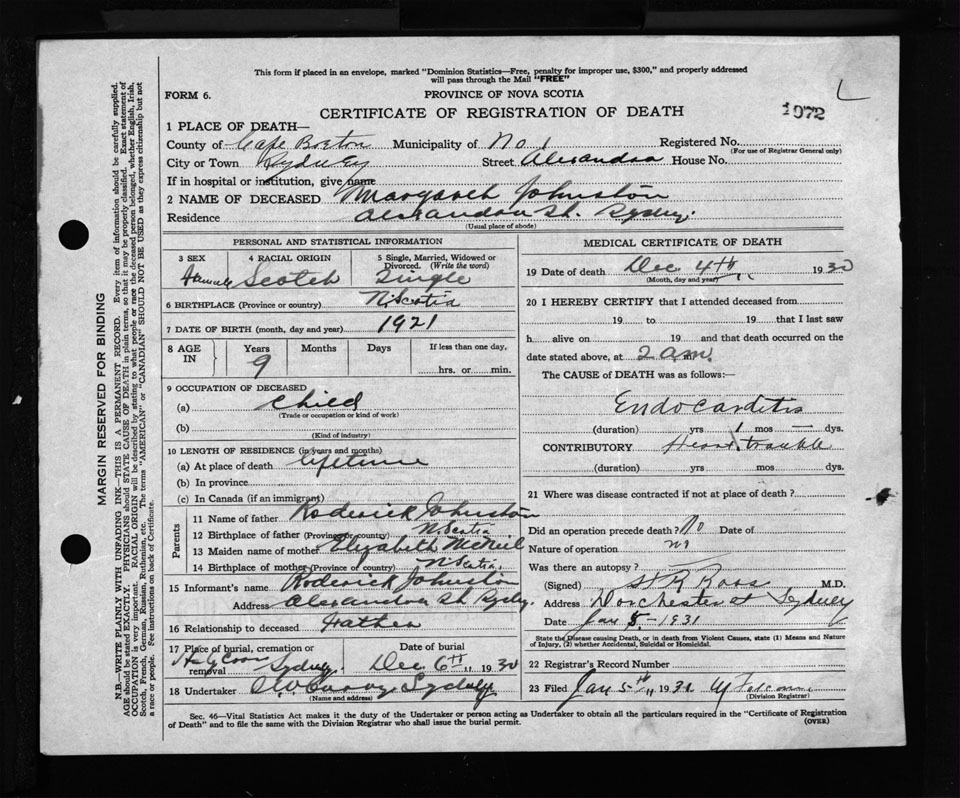 This form if placed in an envelope, marked "Dominion Statistics—Free, penalty for improper use, $300," and properly addressed
will pass through the Mail "FREE"
FORM 6.
PROVINCE OF NOVA SCOTIA
CERTIFICATE OF REGISTRATION OF DEATH
1072
1 PLACE OF DEATH—
County of Cape Breton Municipality of No 1 Registered No.
(For use of Registrar General only)
City or Town Sydney Street Alexandra House No.
If in hospital or institution, give name
2 NAME OF DECEASED Margaret Johnston
Residence Alexandra St. Sydney.
(Usual place of abode)
PERSONAL AND STATISTICAL INFORMATION
3 SEX Female
4 RACIAL ORIGIN Scotch
5 Single, Married, Widowed or Divorced. (Write the word) Single
6 BIRTHPLACE (Province or country) N. Scotia
7 DATE OF BIRTH (month, day and year) 1921
8 AGE IN Years 9 Months Days If less than one day, hrs. or min.
9 OCCUPATION OF DECEASED
(a) Child
(Trade or occupation or kind of work)
(b)
(Kind of industry)
10 LENGTH OF RESIDENCE (in years and months)
(a) At place of death lifetime
(b) In province
(c) In Canada (if an immigrant)
Parents
11 Name of father Roderick Johnston
12 Birthplace of father (Province or country) N. Scotia
13 Maiden name of mother Elizabeth McNeil
14 Birthplace of mother (Province of country) N. Scotia
15 Informant's name Roderick Johnston
Address Alexandra St Sydney.
16 Relationship to deceased Father
17 Place of burial, cremation or removal Sydney. Date of burial Dec 6th 1930
18 Undertaker Sydney
(Name and address)
MEDICAL CERTIFICATE OF DEATH
19 Date of death Dec 4th 1930
(Month, day and year)
20 I HEREBY CERTIFY that I attended deceased from
19 to 19 that I last saw
h alive on 19 and that death occurred on the
date stated above, at 2 a.m.
The CAUSE of DEATH was as follows:—
Endocarditis
(duration) yrs 1 mos — dys.
CONTRIBUTORY Heart trouble
(duration) yrs mos dys.
21 Where was disease contracted if not at place of death?
Did an operation precede death? No Date of
Nature of operation
Was there an autopsy?
(Signed) Ross M.D.
Address Dorchester St Sydney
Date Jan 5 - 1931
State the Disease causing Death, or in death from Violent Causes, state (1) Means and Nature
of Injury, (2) whether Accidental, Suicidal or Homicidal.
22 Registrar's Record Number
23 Filed Jan 5th 1931
(Division Registrar)
Sec. 46—Vital Statistics Act makes it the duty of the Undertaker or person acting as Undertaker to obtain all the particulars required in the "Certificate of Registration
of Death" and to file the same with the Division Registrar who shall issue the burial permit.
(OVER)
MARGIN RESERVED FOR BINDING
N.B.—WRITE PLAINLY WITH UNFADING INK—THIS IS A PERMANENT RECORD. Every item of information should be carefully supplied.
AGE should be stated EXACTLY. PHYSICIANS should STATE CAUSE OF DEATH in plain terms, so that it may be properly classified. Exact statement of
OCCUPATION is very important. RACIAL ORIGIN will be described by stating to what people or race the deceased person belonged, whether English, Irish,
Scotch, French, German, Russian, Ruthenian, etc. The terms "AMERICAN" or "CANADIAN" SHOULD NOT BE USED as they express citizenship but not
a race or people. See instructions on back of Certificate.